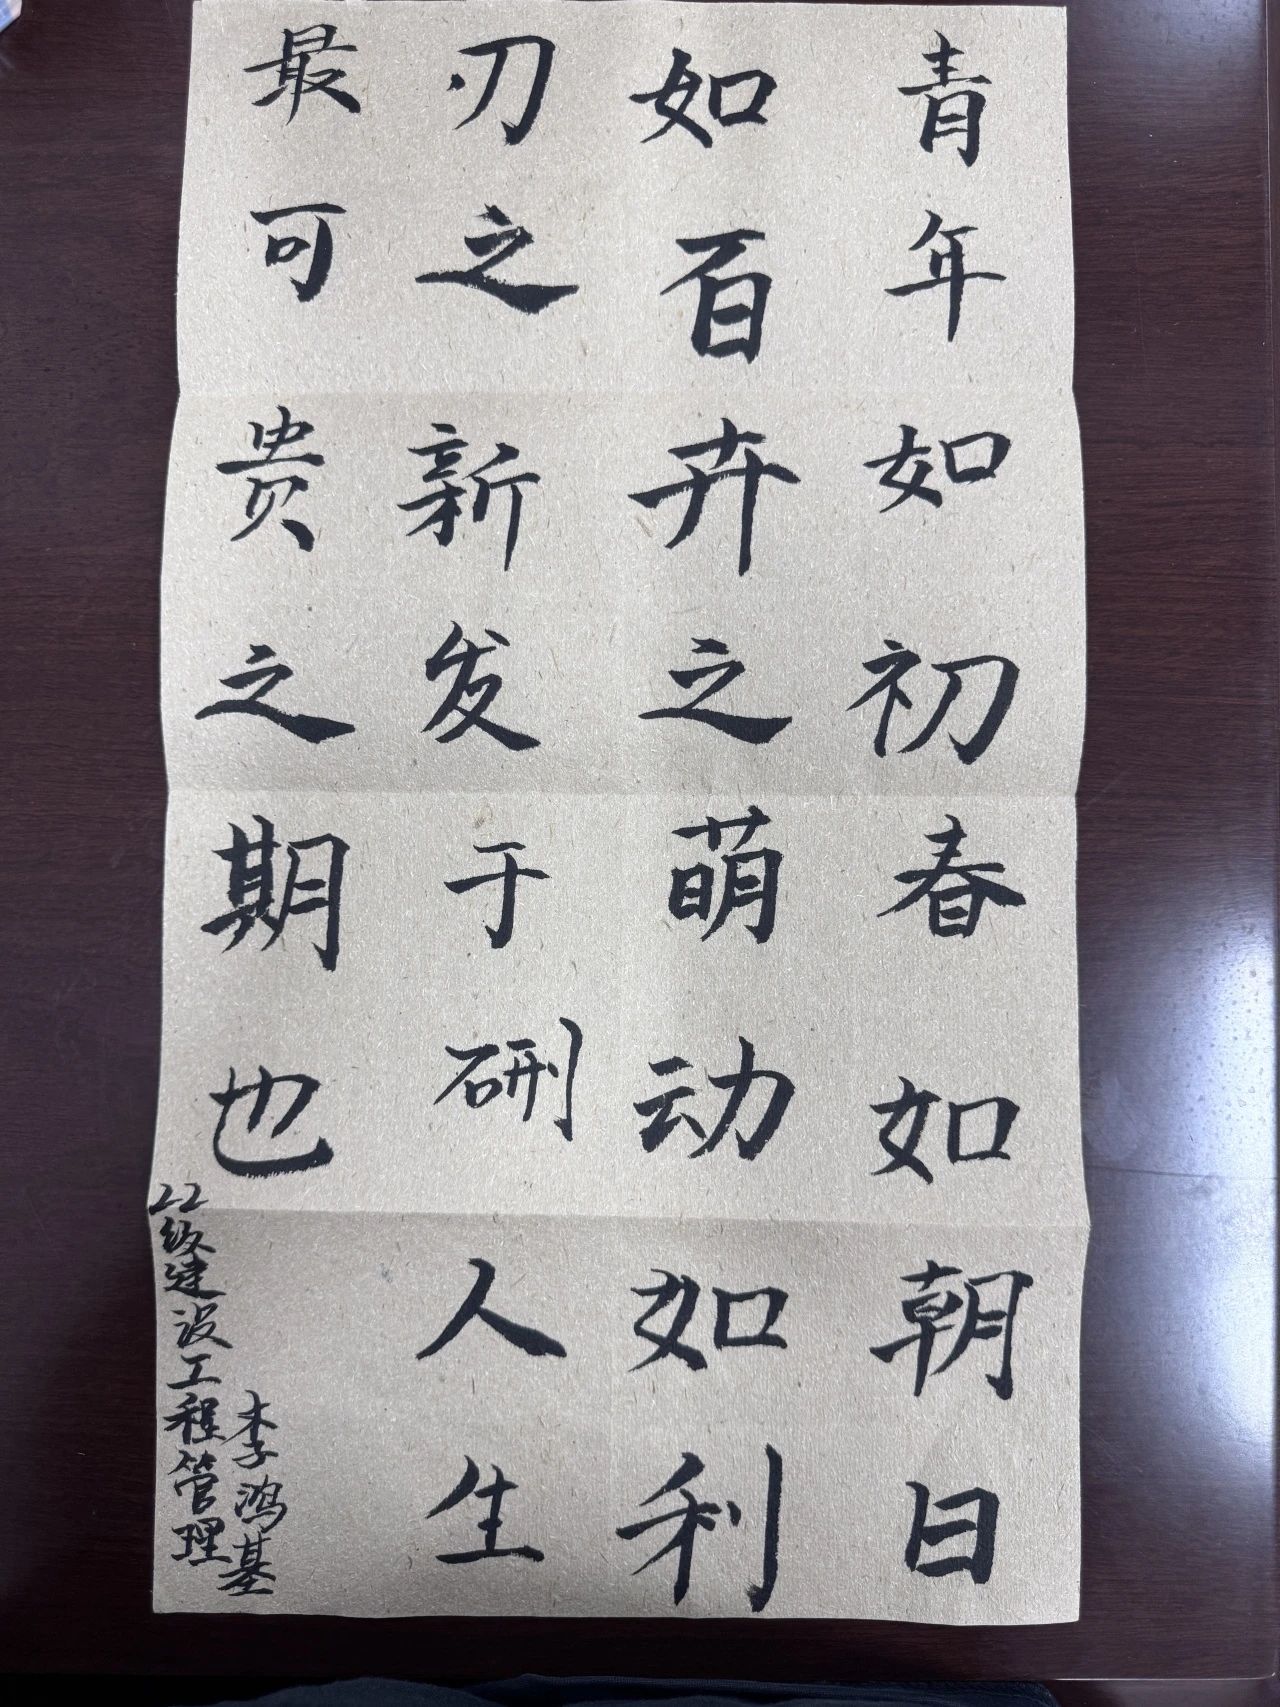 青年如初春如朝日
如百卉之萌动如利
刃之新发于硎人生
最可贵之期也
22级建设工程管理
李鸿基